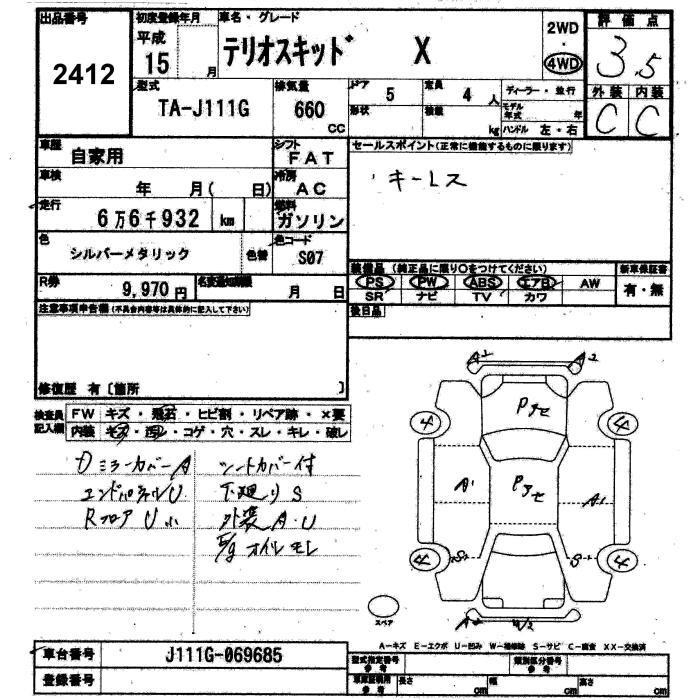 出品番号 2412
初度登録年月 平成 15 月
車名・グレード テリオスキッド X
2WD・4WD
評価点 3.5
外装 C 内装 C
型式 TA-J111G
排気量 660 CC
ドア 5 定員 4 人
形状 積載 kg
ディーラー・並行
モデル年式 年
ハンドル 左・右
車歴 自家用
シフト FAT
車検 年 月( 日)
冷房 AC
走行 6万6千932 km
燃料 ガソリン
色 シルバーメタリック 色替
色コード S07
R券 9,970円
名変通知期限 月 日
セールスポイント(正常に機能するものに限ります)
キーレス
装備品 (純正品に限り○をつけてください)
PS PW ABS エアB AW
SR ナビ TV カワ
新車保証書 有・無
後日品
注意事項申告欄(不具合内容等は具体的に記入して下さい)
修復歴 有〔箇所 〕
検査員記入欄
FW キズ・飛石・ヒビ割・リペア跡・×要
内装 キズ・汚レ・コゲ・穴・スレ・キレ・破レ
Dミラーカバー A
エンドパネル U
Rフロア U 小
シートカバー付
下廻り S
外装 A・U
E/g オイルモレ
A2 A2
Pアセ
4 4
A1 Pアセ A1
4 S1 S1 4
A2 W2
スペア
A-キズ E-エクボ U-凹み W-補修跡 S-サビ C-腐食 XX-交換済
車台番号 J111G-069685
登録番号
型式指定番号 参考
類別区分番号 参考
車庫証明用 参考 長さ cm 幅 cm 高さ cm